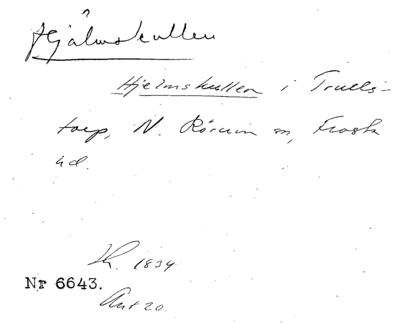 Hjälmskullen
Hjelmskullen i Trulls-
torp, N. Rörum sn, Frosta
hd.
1834
Nr 6643.
Ant 20.